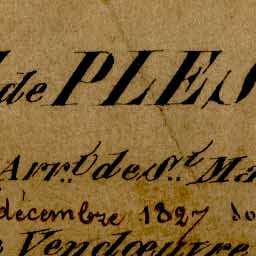 de PLES
Arr.t de St. Ma
décembre 1827 do
Vendœuvre